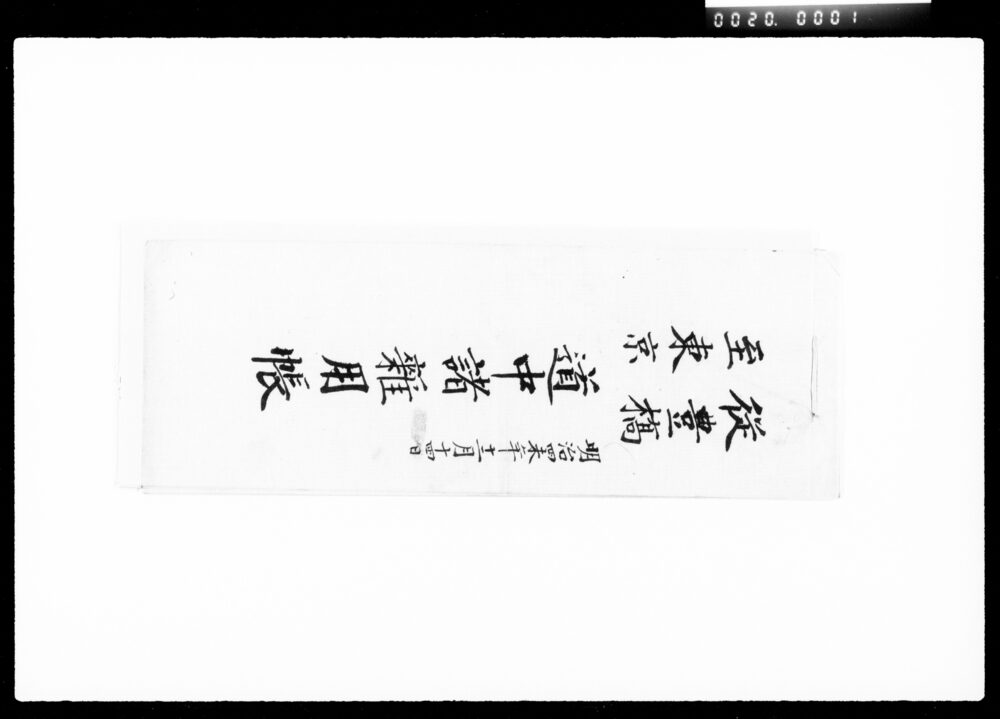 從豊橋
至東京
道中諸雜用帳
明治四未年十二月十四日
0020. 0001